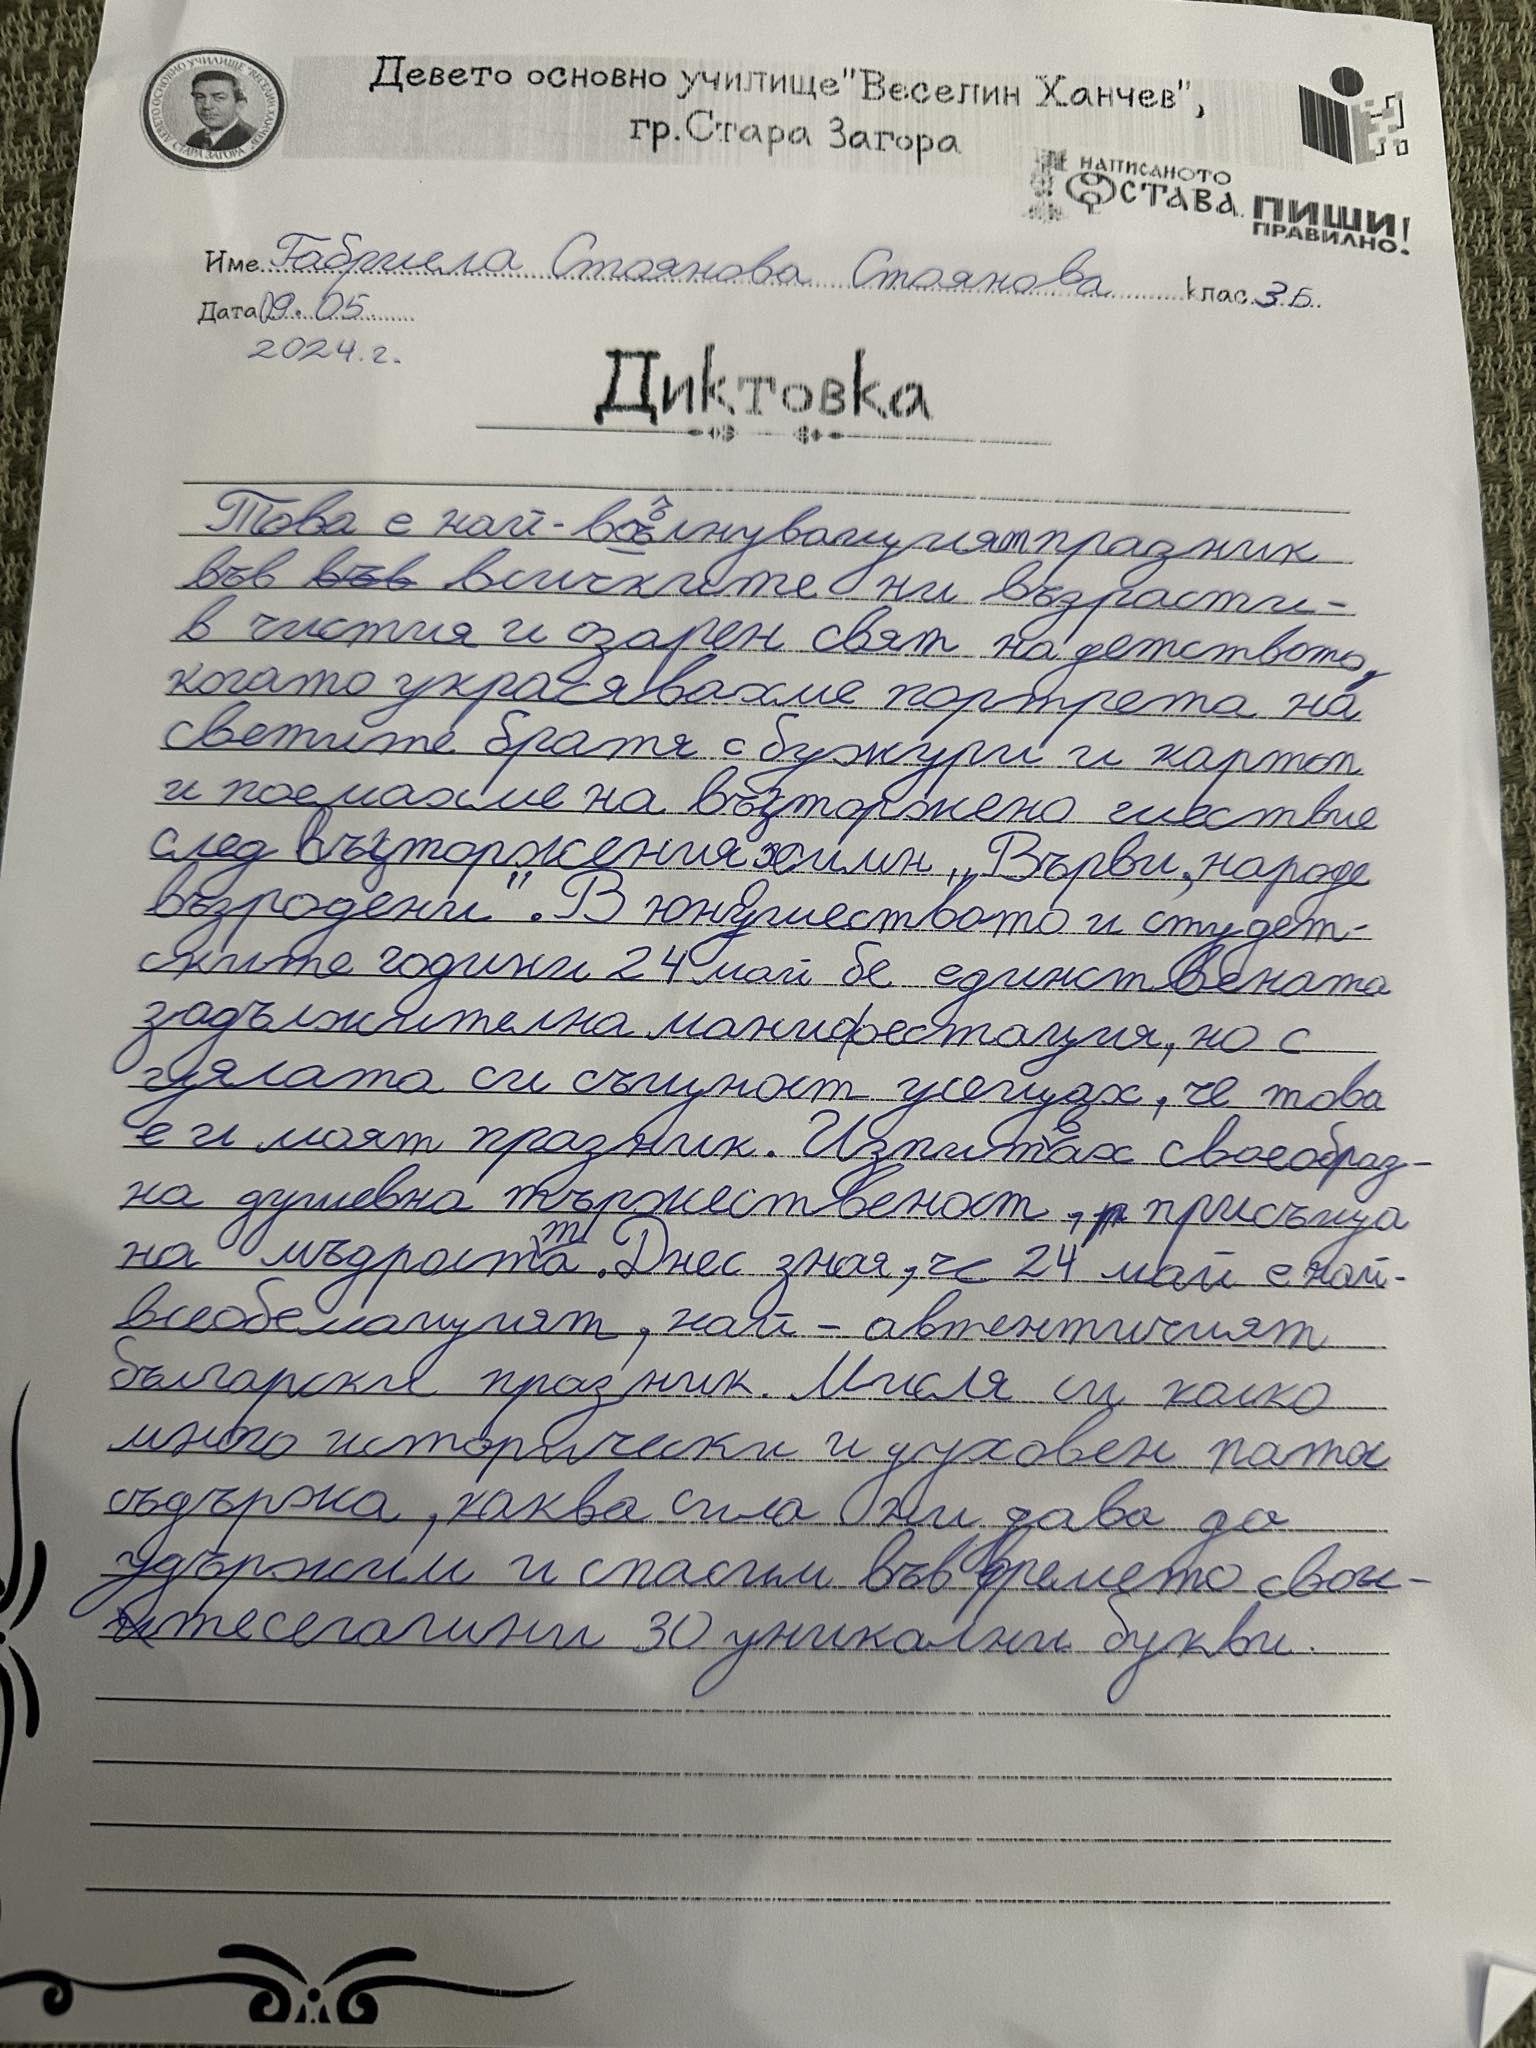 ДЕВЕТО ОСНОВНО УЧИЛИЩЕ "ВЕСЕЛИН ХАНЧЕВ"
СТАРА ЗАГОРА
Девето основно училище "Веселин Ханчев",
гр.Стара Загора
НАПИСАНОТО
ОСТАВА. ПИШИ
ПРАВИЛНО!
Име Габриела Стоянова Стоянова клас 3 Б
Дата 09. 05
2024. г.
Диктовка
Това е най-вълнуващият празник
във във всичките ни възрасти -
в чистия и озарен свят на детството,
когато украсявахме портрета на
светите братя с бужури и картоп
и поемахме на възторжено шествие
след възторжения химн „Върви, народе
възродени". В юношеството и студет-
ските години 24 май бе единствената
задължителна манифестация, но с
цялата си същност усещах, че това
е и моят празник. Изпитвах своеобраз-
на душевна тържественост, присъща
на мъдростта. Днес зная, че 24 май е най-
всеобемащият, най - автентичият
български празник. Мисля си колко
много исторически и духовен паток
съдържа, каква сила ни дава да
удържим и спасим във времето свои-
тесегашни 30 уникални букви.